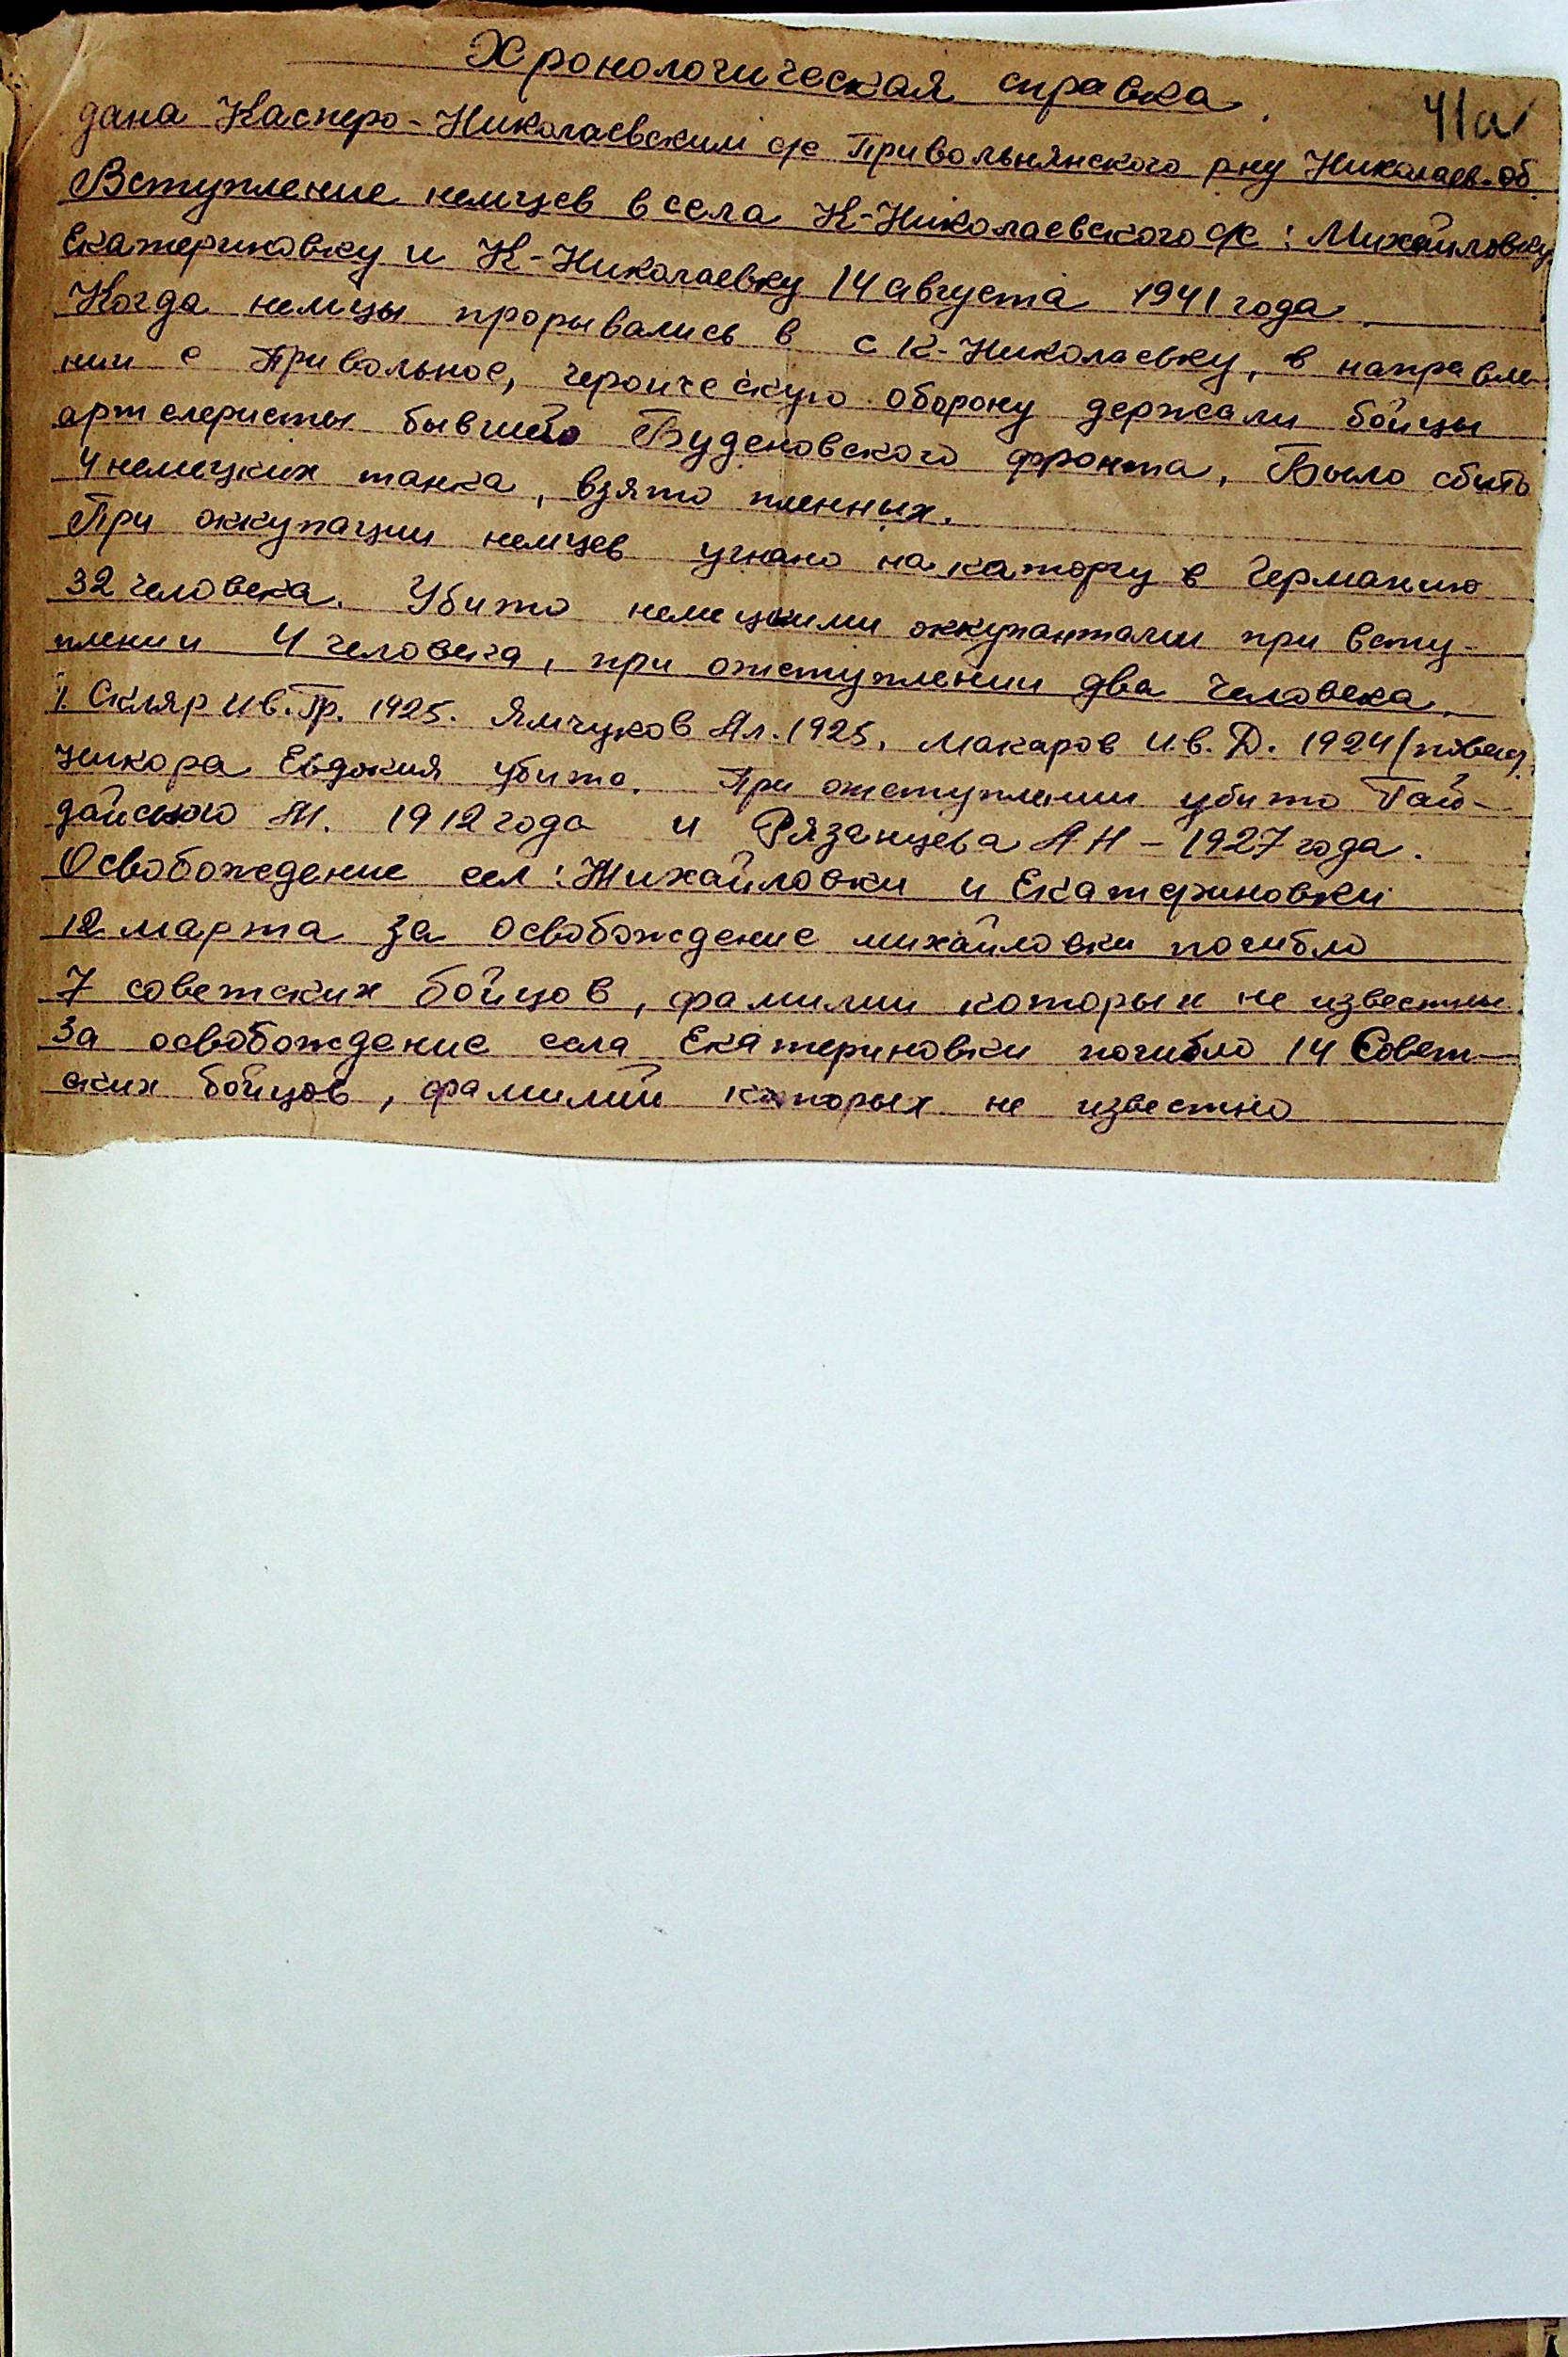 Хронологическая справка
41а
дана Касперо-Николаевским с/с Привольнянского р-ну Николаев. об.
Вступление немцев в села К-Николаевского с/с: Михайловку
Екатериновку и К-Николаевку 14 августа 1941 года.
Когда немцы прорывались в с К-Николаевку, в направле-
нии с Привольное, героическую оборону держали бойцы
артелеристы бывшего Буденовского фронта. Было сбито
4 немецких танка, взято пленных.
При оккупации немцев угнано на каторгу в Германию
32 человека. Убито немецкими оккупантами при всту-
плении 4 человека, при отступлении два человека.
1. Скляр Ив. Гр. 1925. Ямчуков Ал. 1925, Макаров Ив. Д. 1924
Евдокия убито. При отступлении убито Гай-
М. 1912 года и Рязанцева А Н - 1927 года.
Освобождение сел: Михайловки и Екатериновки
12 марта за освобождение михайловки погибло
7 советских бойцов, фамилии которых не известны.
За освобождение села Екатериновки погибло 14 Совет-
ских бойцов, фамилий которых не известно